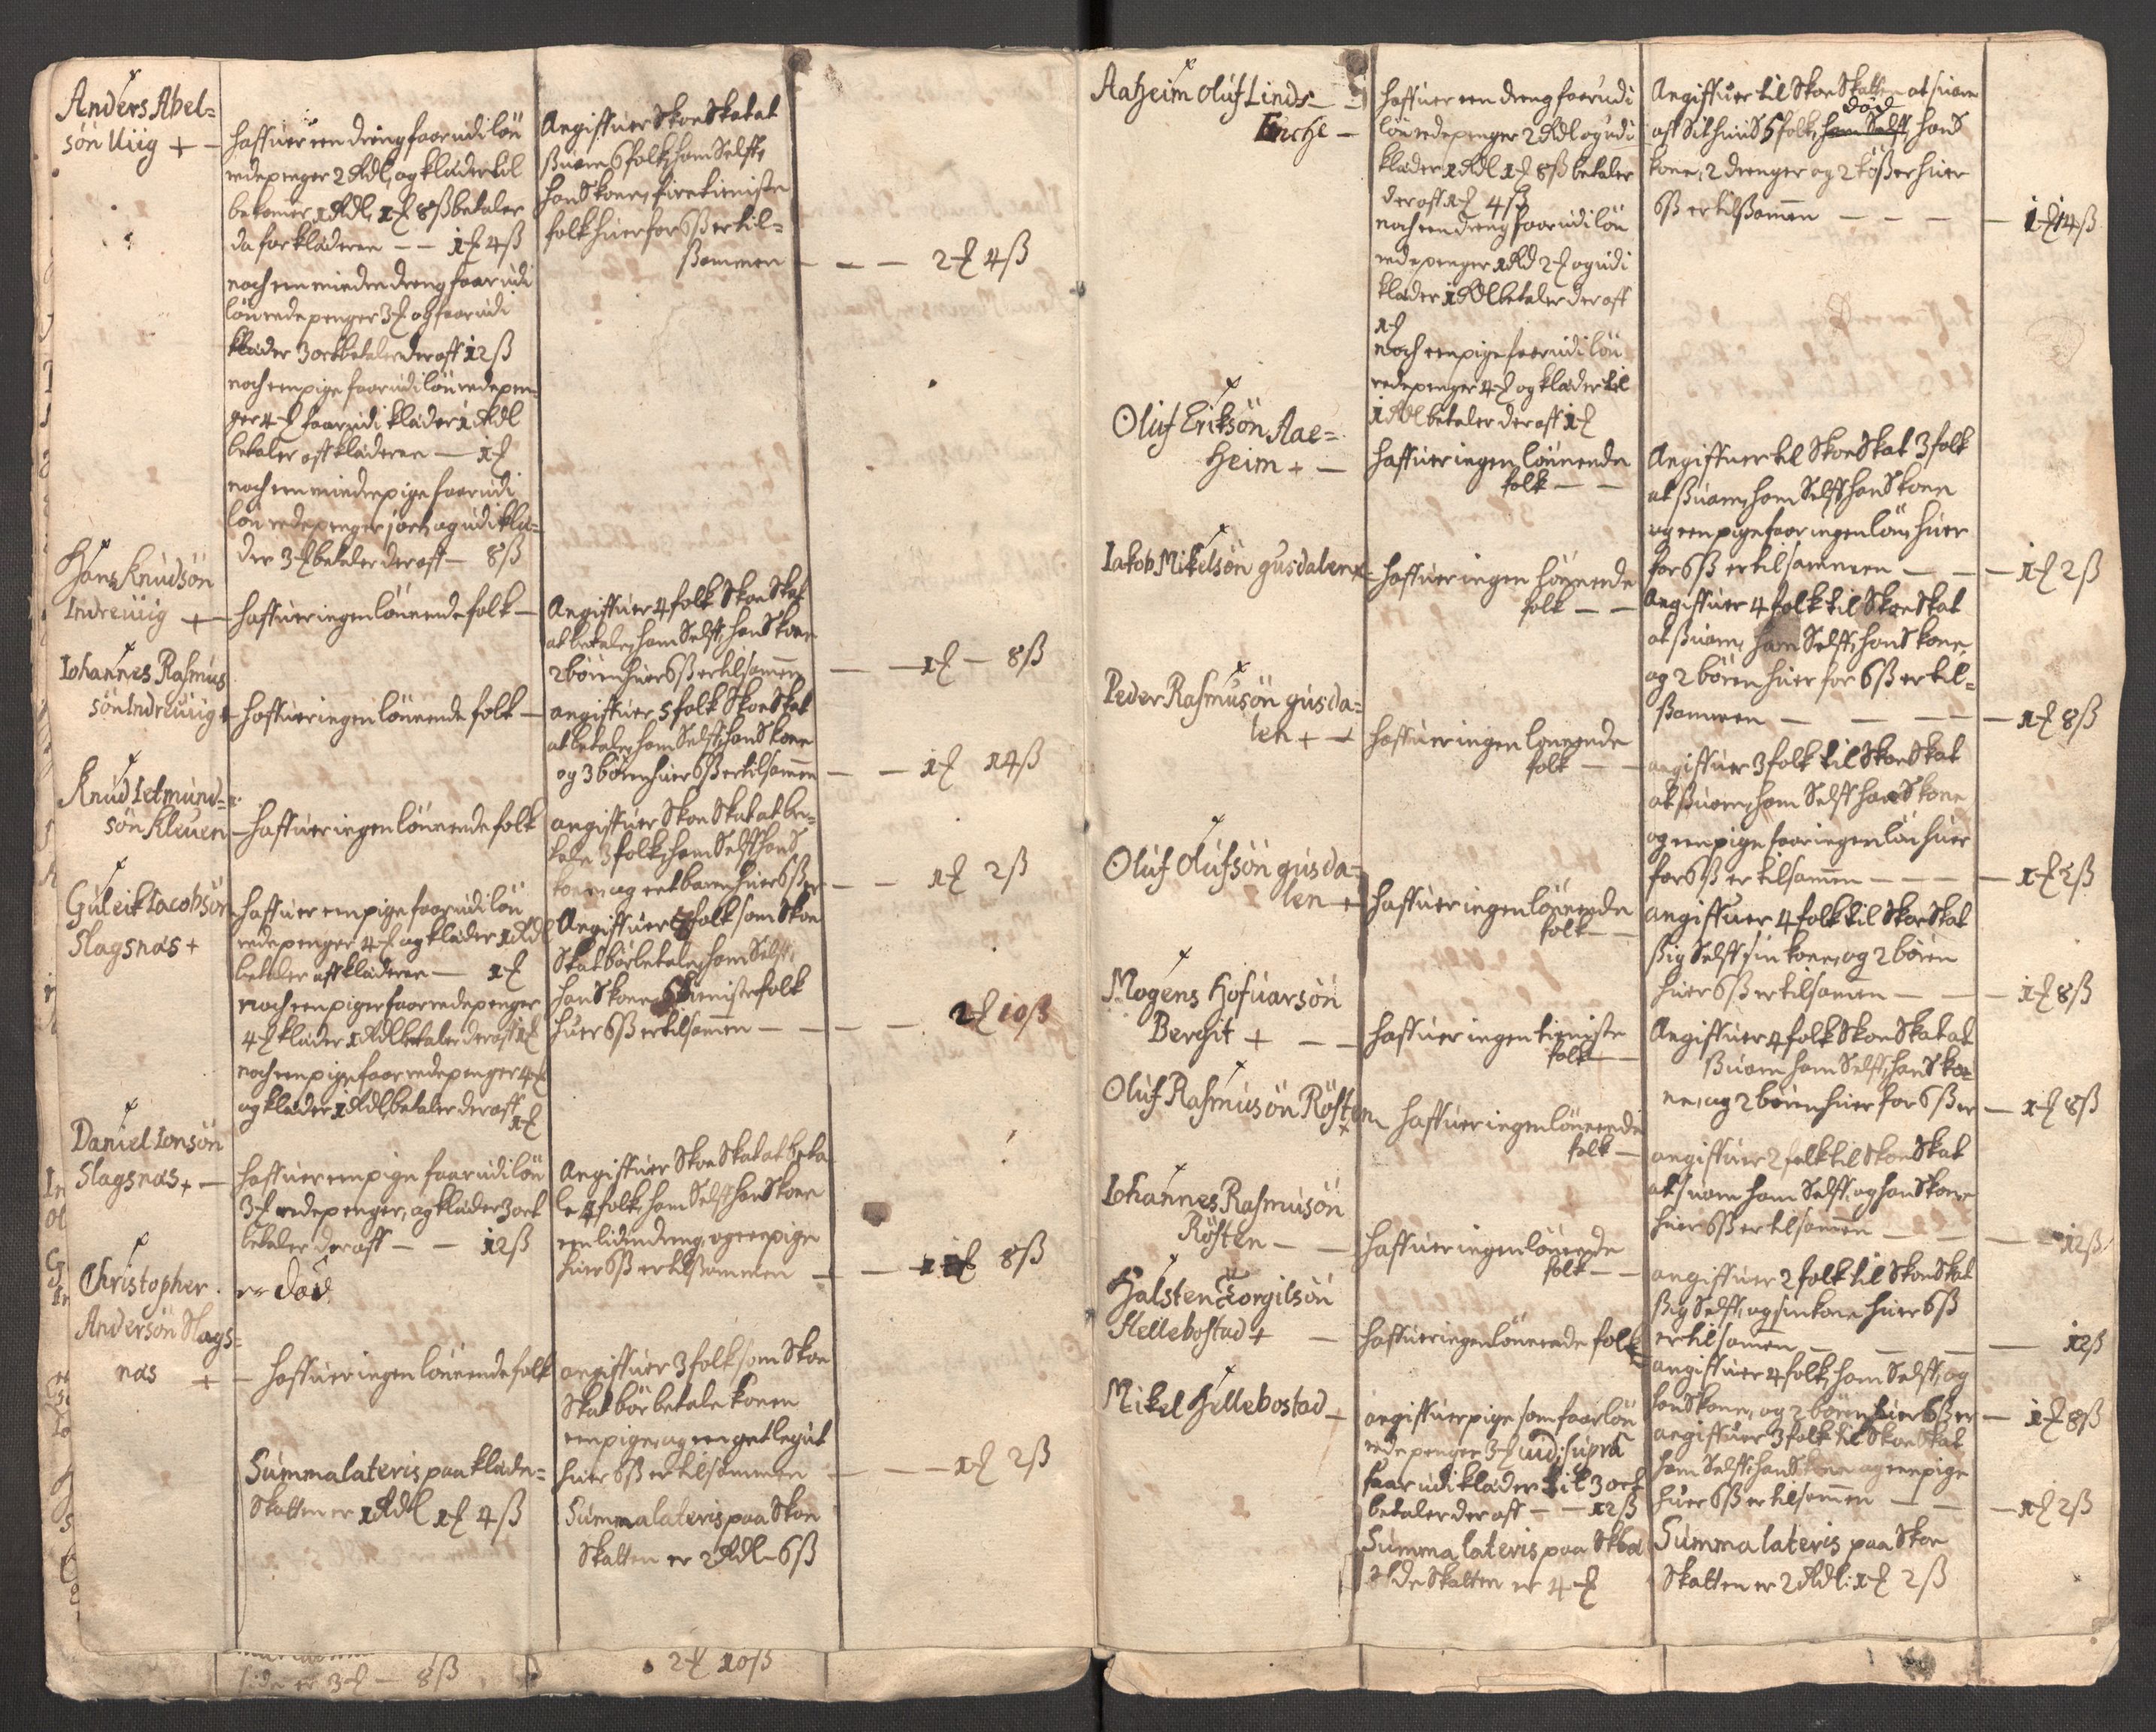 Anders Abel=
sön Uiig + -
haffuer een dreng faar udi lön
rede penger 2 Rdl, og klæder til
bekomer 1 Rdl, 1 ₰ 8 ß betaler
da for kläderne - - 1 ₰ 4 ß
noch een mindre dreng faar udi
lön rede penger 3 ₰ og faar udi
kläder 3 ort betaler der aff 12 ß
noch een pige faar udi lön rede pen=
ger 4 ₰ faar udi kläder 1 Rdl
betaler aff kläderne - 1 ₰
noch een mindre pige faar udi
lön rede penger 1 ort, og udi klæ=
der 3 ₰ betaler der aff - 8 ß
Angiffuer Skoe Skat at
suare 6 folk, ham Selff,
hans kone, fire tieniste
folk huer for 6 ß er til=
sammen - - - 2 ₰ 4 ß
Hans Knudsön
Indreuiig +
haffuer ingen lönnende folk -
Angiffuer 4 folk Skoe Skat
at betale, ham Selff, hans kone
2 börn huer 6 ß er tilsamen - - 1 ₰ - 8 ß
Iohannes Rasmus
sön Indreuiig +
haffuer ingen lönnende folk -
angiffuer 5 folk Skoe Skat
at betale, ham Selff, hans kone
og 3 börn huer 6 ß er tilsamen - - 1 ₰ 14 ß
Knud Ietmund=
sön Kleuen -
haffuer ingen lönnende folk
angiffuer Skoe Skat at be=
tale 3 folk, ham Selff, hans
kone, og eet barn huer 6 ß er - - 1 ₰ 2 ß
Guleik Iacobsön
Slagsnæs +
haffuer een pige faar udi lön
rede penger 4 ₰ og kläder 1 Rdl
betaler aff kläderne - 1 ₰
noch een piger faar rede penger
4 ₰ kläder 1 Rdl betaler der aff 1 ₰
noch een pige faar rede penger 4 ₰
og kläder 1 Rdl, betaler der aff
1 ₰
Angiffuer folk som Skoe
Skat bör betale, ham Selff,
hans kone tieniste folk
huer 6 ß er tilsamen - - - 2 ₰ 10 ß
Daniel Ionsön
Slagsnæs + -
haffuer een pige faar udi lön
3 ₰ rede penger, og kläder 3 ort
betaler der aff - - 12 ß
Angiffuer Skoe Skat at beta
le 4 folk, ham Selff, hans kone
een liden dreng, og een pige
huer 6 ß er tilsammen - - 1 ₰ 8 ß
Christopher
Andersön Slags=
næs + -
er död
haffuer ingen lönnende folk
angiffuer 3 folk som Skoe
Skat bör betale konen
een pige, og een getlegut
huer 6 ß er tilsammen - - 1 ₰ 2 ß
Summa lateris paa klæde=
Skatten er 1 Rdl 1 ₰ 4 ß
Summa lateris paa Skoe
Skatten er 2 Rdl - 6 ß
side er 3 ₰ - 8 ß
2 ₰ 10 ß
Aaheim Oluf Linds - -
Enche -
haffuer een dreng faar udi
lön rede penger 2 Rdl og udi
kläder 1 Rdl 1 ₰ 8 ß betaler
der aff 1 ₰ 4 ß
noch een dreng faar udi lön
rede penger 1 Rd 2 ₰ og udi
kläder 1 Rdl betaler der aff
1 ₰
noch een pige faar udi lön
rede penger 4 ₰ og kläder til
1 Rdl betaler der aff 1 ₰
Angiffuer til Skoe Skatten at suare
död
aff Sit huus 5 folk, ham Selff, hans
kone, 2 drenger og 2 tösser huer
6 ß er tilsammen - - - 1 ₰ 14 ß
Oluf Eriksön Aae=
heim + -
haffuer ingen lönnende
folk - -
Angiffuer til Skoe Skat 3 folk
at suare, ham Selff, hans kone
og een pige faar ingen lön, huer
for 6 ß er tilsammen - - - 1 ₰ 2 ß
Iakob Mikelsön gusdalen +
haffuer ingen lönnende
folk - -
Angiffuer 4 folk til Skoe Skat
at suare, ham Selff, hans kone,
og 2 börn huer for 6 ß er til=
sammen - - - 1 ₰ 8 ß
Peder Rasmusön gusda=
len + -
haffuer ingen lönnende
folk - -
angiffuer 3 folk til Skoe Skat
at suare, ham Selff hans kone
og een pige faar ingen lön huer
for 6 ß er tilsamen - - - 1 ₰ 2 ß
Oluf Olufsön gusda=
len +
haffuer ingen lönnende
folk - -
angiffuer 4 folk til Skoe Skat
sig Selff, sin kone, og 2 börn
huer 6 ß er tilsamen - - - 1 ₰ 8 ß
Mogens Hofuarsön
Berghit + - -
haffuer ingen tieniste
folk -
Angiffuer 4 folk Skoe Skat at
suare ham Selff, hans ko=
ne, og 2 börn huer for 6 ß er - 1 ₰ 8 ß
Oluf Rasmusön Rösten
+
haffuer ingen lönnende
folk -
angiffuer 2 folk til Skoe Skat
at suare ham Selff, og hans kone
huer 6 ß er tilsammen - - - 12 ß
Iohannes Rasmusön
Rösten - -
haffuer ingen lönnende
folk - -
angiffuer 2 folk til Skoe Skat
sig Selff, og sin kone huer 6 ß
er tilsamen - - - 12 ß
Halsten Torgilsön
Hellebostad + -
haffuer ingen lönnende folk
angiffuer 4 folk, ham Selff, og
hans kone, og 2 börn huer 6 ß er - 1 ₰ 8 ß
Mikel Hellebostad -
angiffuer pige som faar lön
rede penger 3 ₰ uid: supra
faar udi kläder til 3 ort
betaler der aff - - 12 ß
angiffuer 3 folk til Skoe Skat
ham Selff, hans kone og een pige
huer 6 ß er tilsamen - - - 1 ₰ 2 ß
Summa lateris paa
Skatten er 4 ₰
Summa lateris paa Skoe
Skatten er 2 Rdl: 1 ₰ 2 ß